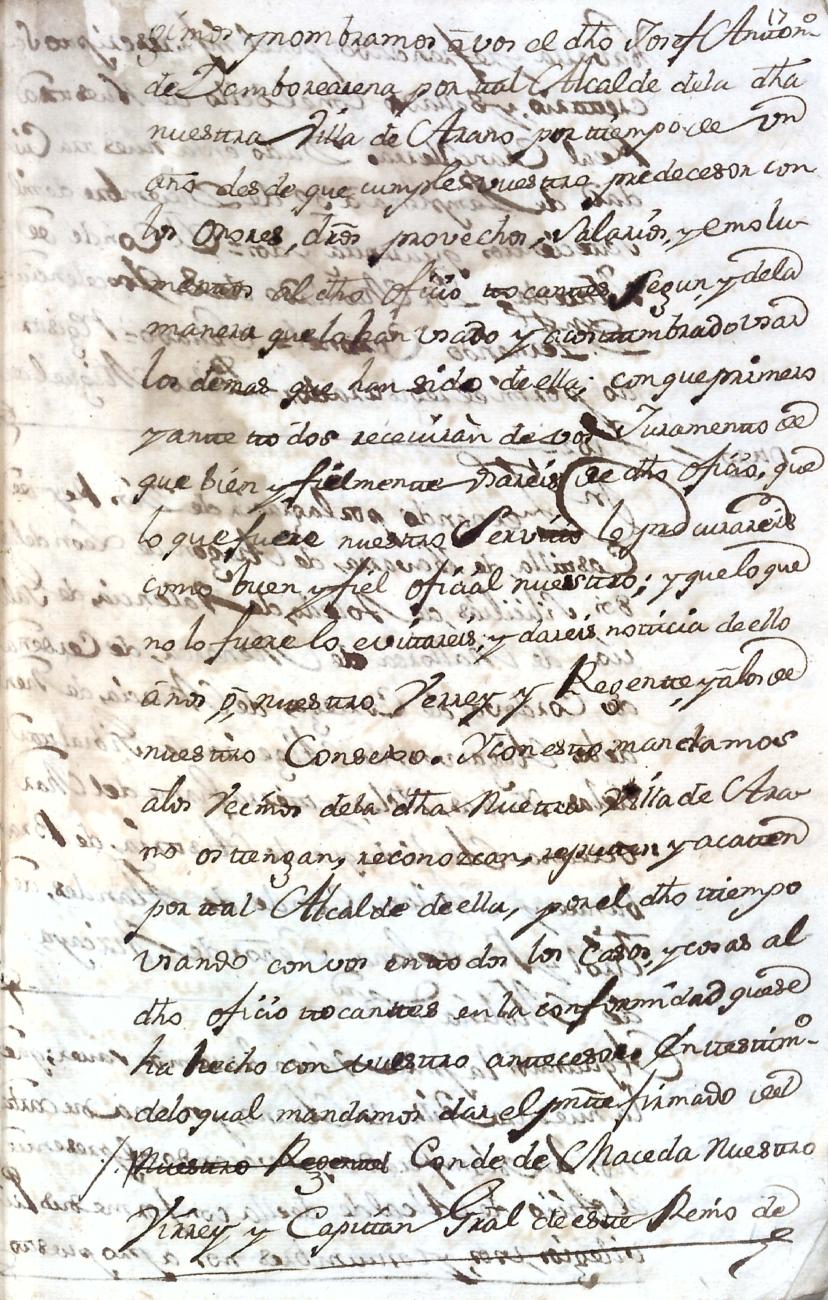 17
gimos y nombramos à vos el dho Josef Anttº
de Zamborearena por ttal Alcalde de la dha
nuesttra Villa de Arano por ttiempo de un
año desde que cumple vuesttro predecesor con
los onores, drõs provechos, salarios, y emolu-
menttos al dho oficio ttocanttes segun, y de la
manera que lo han usado y acosttumbrado usar
los demas que han sido de ella; con que primero
y antte ttodos receviràn de vos Juramentto de
que bien y fielmentte usareis de dho oficio, que
lo que fuere nuesttro Servicio lo procurareis
como buen y fiel oficial nuesttro; y que lo que
no lo fuere lo evittareis, y dareis notticia de ello
à nos ò, à nuesttro Virrey y Regentte, y à los de
nuesttro Consexo. Y con estto mandamos
à los Vecinos de la dha Nuestra Villa de Ara-
no os ttengan, reconozcan, reputten y acatten
por ttal Alcalde de ella, por el dho ttiempo
usando con vos en ttodos los casos, y cosas al
dho oficio ttocanttes en la conformidad que se
ha hecho con vuesttro anttecesor. En testtimº
de lo qual mandamos dar el presntte firmado del
Nuesttro Regentte Conde de Maceda Nuesttro
Virrey y Capittan Gral de estte Reino de